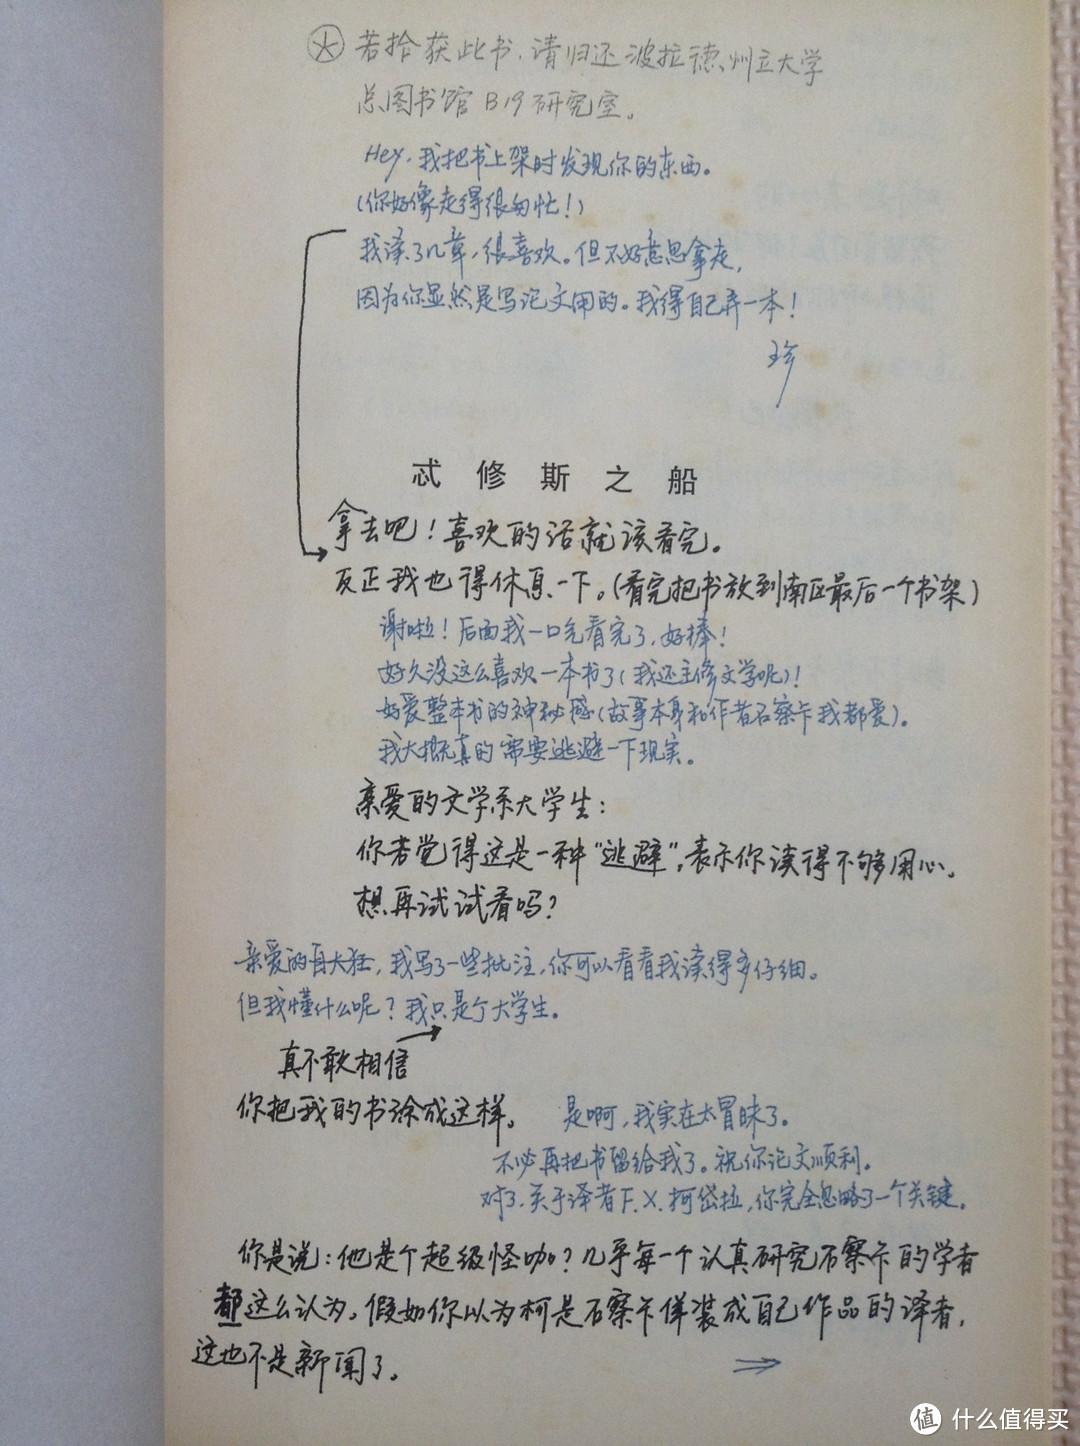 若拾获此书，请归还波拉德州立大学
总图书馆B19研究室。
Hey，我把书上架时发现你的东西。
（你好像走得很匆忙！）
我读了几章，很喜欢。但不好意思拿走，
因为你显然是写论文用的。我得自己弄一本！
珍
忒修斯之船
拿去吧！喜欢的话就该看完。
反正我也得休息一下。（看完把书放到南区最后一个书架）
谢啦！后面我一口气看完了，好棒！
好久没这么喜欢一本书了（我还主修文学呢）！
好爱整本书的神秘感（故事本身和作者石察卡我都爱）。
我大概真的需要逃避一下现实。
亲爱的文学系大学生：
你若觉得这是一种“逃避”，表示你读得不够用心。
想再试试看吗？
亲爱的自大狂，我写了一些批注，你可以看看我读得多仔细。
但我懂什么呢？我只是个大学生。
真不敢相信
你把我的书涂成这样。
是啊，我实在太冒昧了。
不必再把书留给我了。祝你论文顺利。
对了，关于译者F.X.柯岱拉，你完全忽略了一个关键。
你是说：他是个超级怪咖？几乎每一个认真研究石察卡的学者
都这么认为。假如你以为柯是石察卡佯装成自己作品的译者，
这也不是新闻了。
值 什么值得买